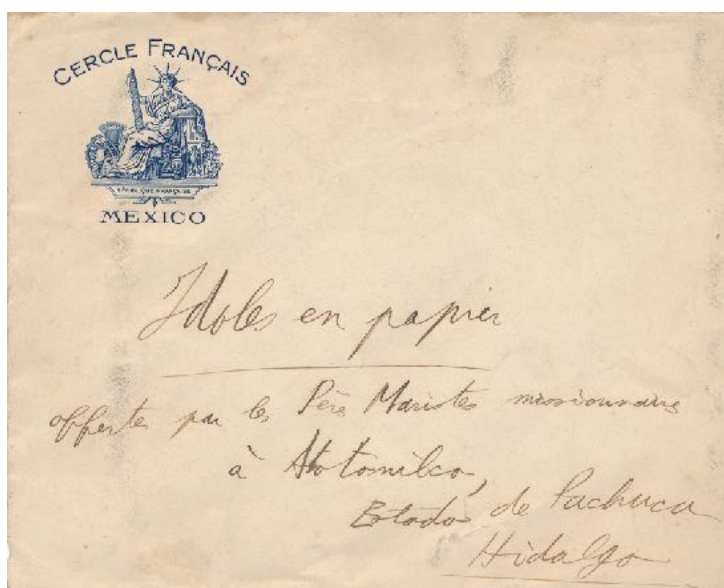 CERCLE FRANÇAIS
RÉPUBLIQUE FRANÇAISE
MEXICO
Idoles en papier
offertes par les Pères Maristes missionnaires
à Atotonilco,
Estado de Pachuca
Hidalgo